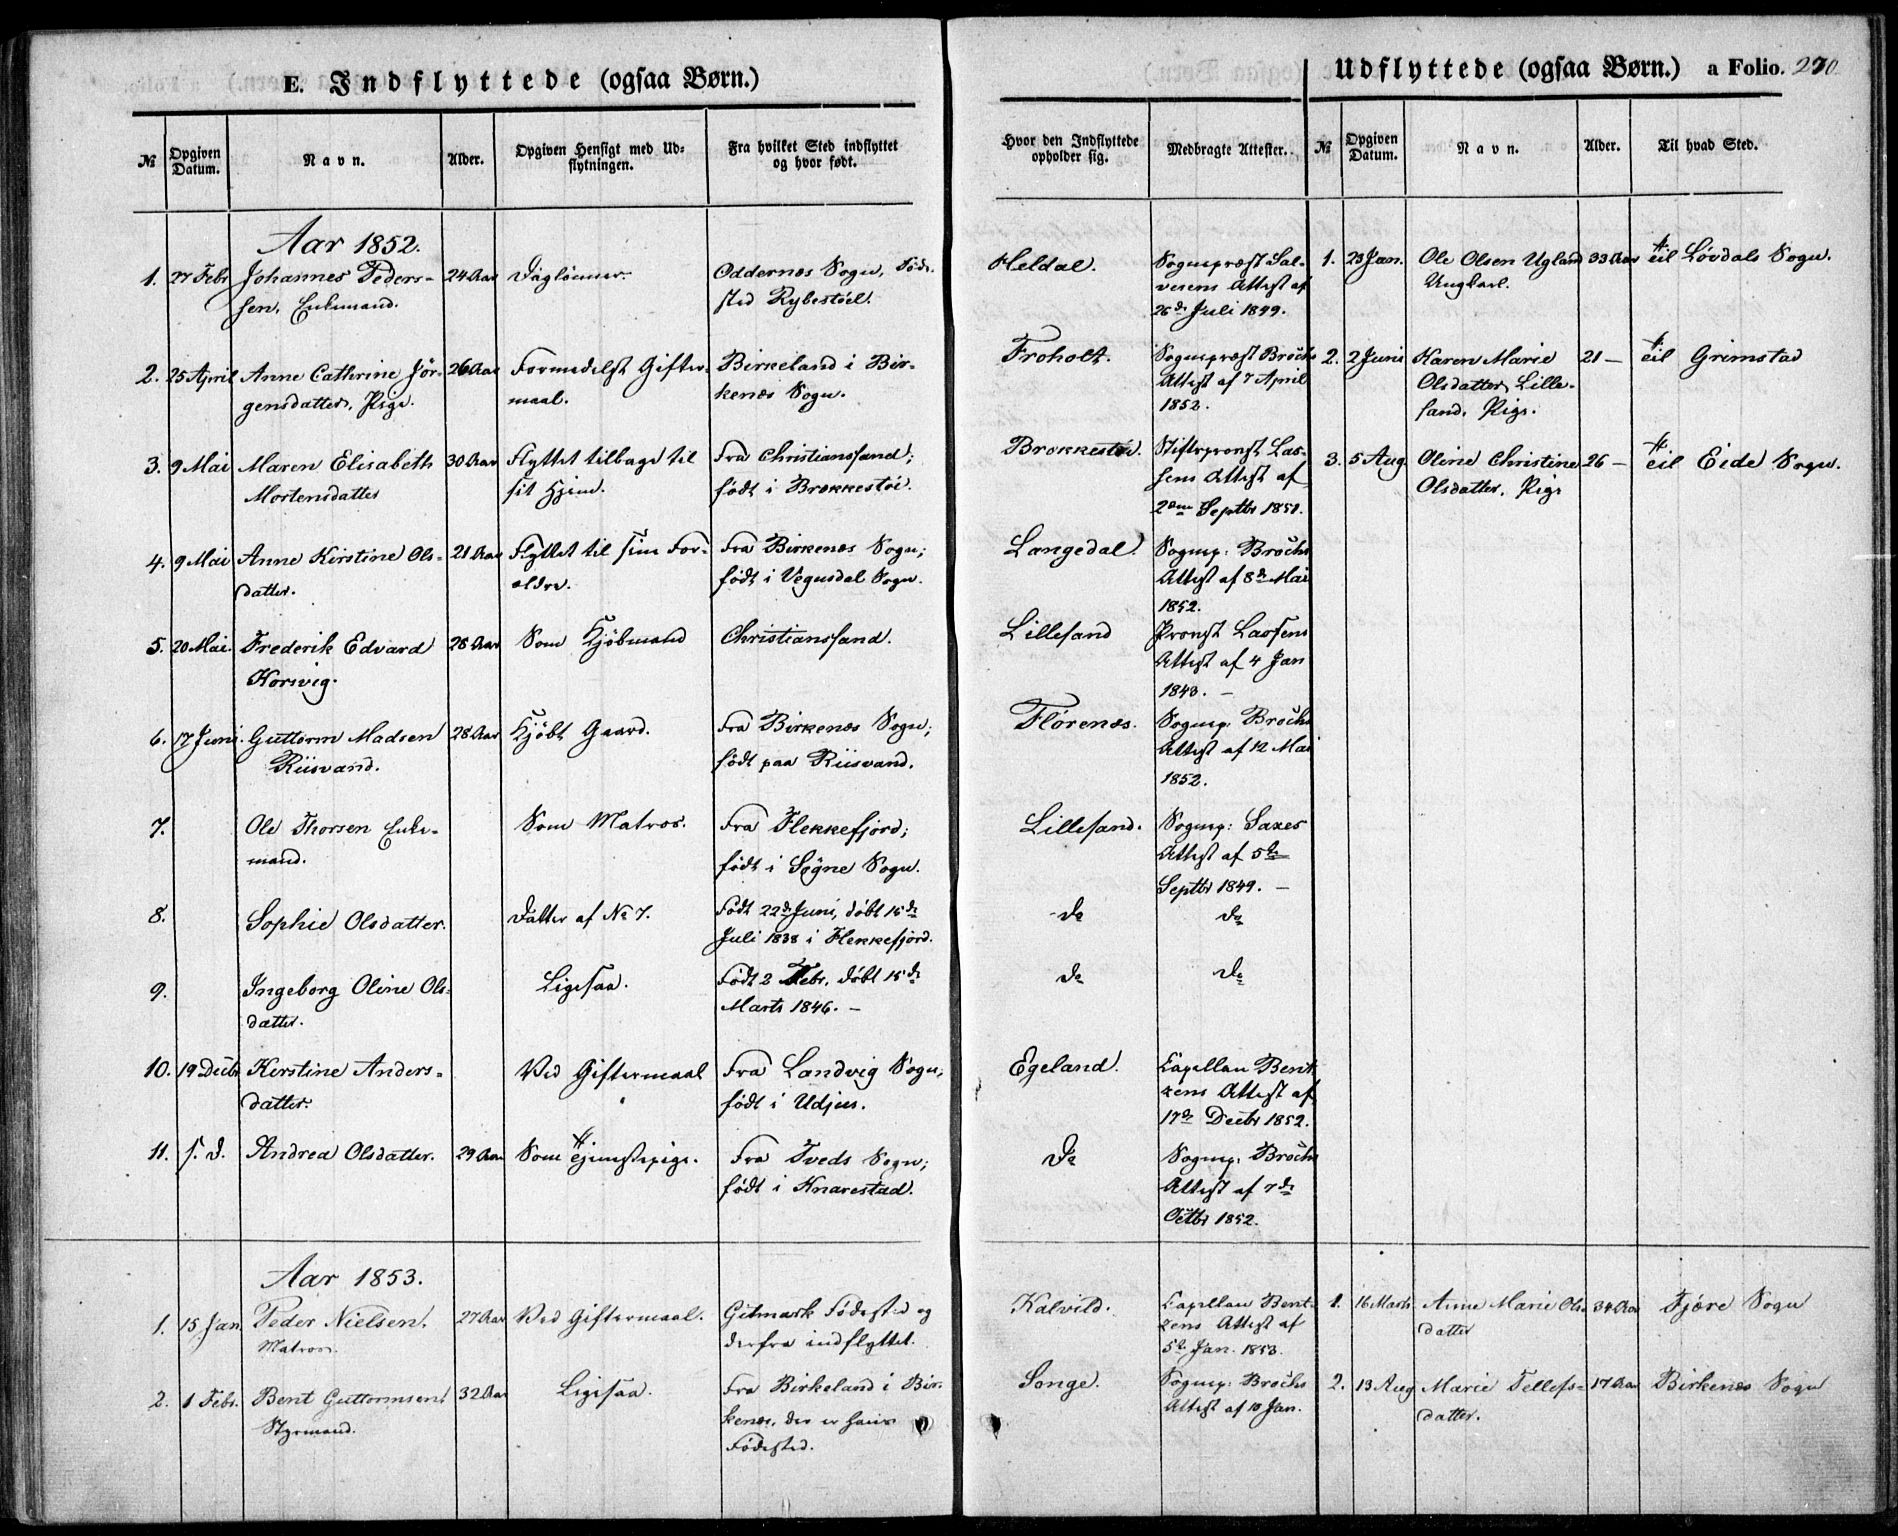 E. Indflyttede (ogsaa Børn.)
Udflyttede (ogsaa Børn.) a Folio. 270.
№ Opgiven Datum. Navn. Alder. Opgiven Hensigt med Udflytningen. Fra hvilket Sted indflyttet og hvor født. Hvor den Indflyttede opholder sig. Medbragte Attester.
№ Opgiven Datum. Navn. Alder. Til hvad Sted.
Aar 1852.
1. 27 Febr Johannes Peders- 24 Aar Dagleiner. Oddernes Sogn, Føde- Heldal. Sognepræst Sal-
sen, Enkemand. sted Rybestöel. vesens Attest af
26de Juli 1849.
2. 25 April Anne Cathrine Jör- 26 Aar Formedelst Gifter- Birkeland i Bir- Froholt. Sognepræst Brochs
gensdatter, Pige. maal. kenæs Sogn. Attest af 7 April
1852.
3. 9 Mai Maren Elisabeth 30 Aar Flyttet tilbage til Fra Christianssand; Brøkkestöi. Stiftsprovst Las-
Mortensdatter sit Hjem. født i Brøkkestöi. sens Attest af
2den Septbr 1851.
4. 9 Mai Anne Kirstine Ols- 21 Aar Flyttet til sine For- Fra Birkenæs Sogn; Langedal. Sognep: Brochs
datter. ældre. født i Vegusdal Sogn. Attest af 8de Mai
1852.
5. 20 Mai. Frederik Edvard 28 Aar Som Kjöbmand Christianssand. Lillesand Provst Lassens
Korsvig. Attest af 4 Jan
1843. —
6. 17 Juni. Guttorm Madsen 28 Aar Kjöbt Gaard. Fra Birkenæs Sogn; Flörenæs. Sognep: Brochs
Riisvand. född paa Riisvand. Attest af 12 Mai
1852.
7. Ole Thorsen Enke- Som Matros. Fra Flekkefjord; Lillesand. Sognep: Saxes
mand. født i Søgne Sogn. Attest af 5te
Septbr 1849. —
8. Sophie Olsdatter. Datter af No 7. Født 22de Juni, döbt 15de do do
Juli 1838 i Flekkefjord.
9. Ingeborg Oline Ols- Ligesaa. Født 2 Febr. döbt 15de do do
datter. Marts 1846. —
10. 19 Decbr Kerstine Anders- Ved Giftermaal Fra Landvig Sogn, Egeland. Capellan Bent-
datter. født i Udjus. zens Attest af
17de Decbr 1852.
11. s. d. Andrea Olsdatter. 29 Aar Som Tjenestepige. Fra Tveds Sogn; do Sognep. Brochs
født i Knarestad. Attest af 7de
Octbr 1852.
Aar 1853.
1. 15 Jan. Peder Nielsen, 27 Aar Ved Giftermaal. Gitmark Fødested og Kalvild. Capellan Bent-
Matros. derfra indflyttet. zens Attest af
5te Jan. 1853.
2. 1 Febr. Bent Guttormsen 32 Aar Ligesaa. Fra Birkeland i Bir- Songe. Sognep: Brochs
Styrmand. kenæs, der er hans Attest af 10 Jan.
Fødested.
1. 23 Jan. Ole Olsen Ugland 33 Aar til Lövdals Sogn.
Ungkarl.
2. 2 Juni Karen Marie 21 — til Grimstad
Olsdatter, Lille-
sand, Pige.
3. 5 Aug. Oline Christine 26 — til Eide Sogn.
Olsdatter, Pige
1. 16 Marts Anne Marie Ols- 34 Aar Fjære Sogn
datter
2. 13 Aug Marie Tellefs- 17 Aar Birkenæs Sogn
datter.